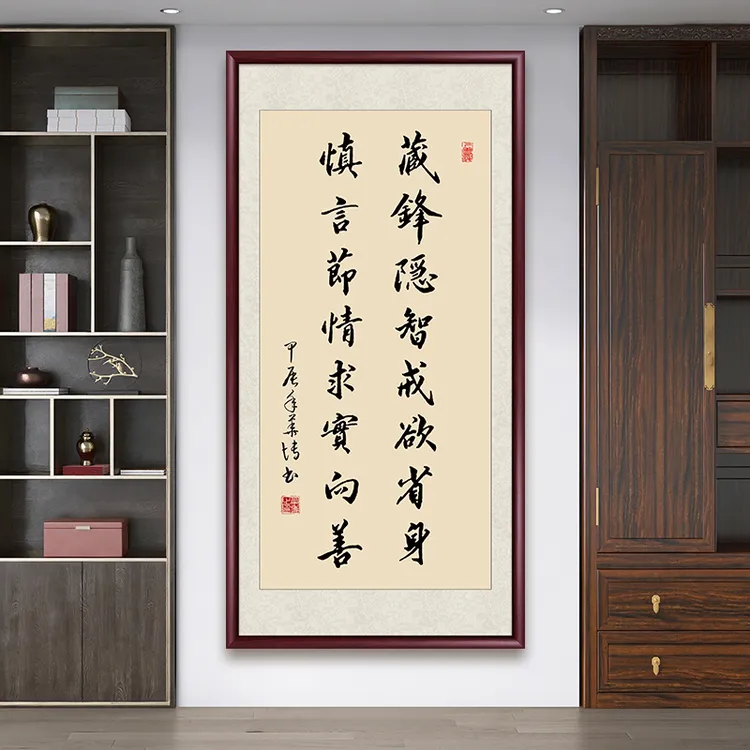 藏鋒隱智戒欲省身
慎言節情求實向善
甲辰年華靖書